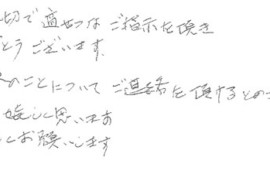 切で適切なご指示を頂き
とうございます.
のことについてご連絡を頂けるとのこ
嬉しく思います
お願いします